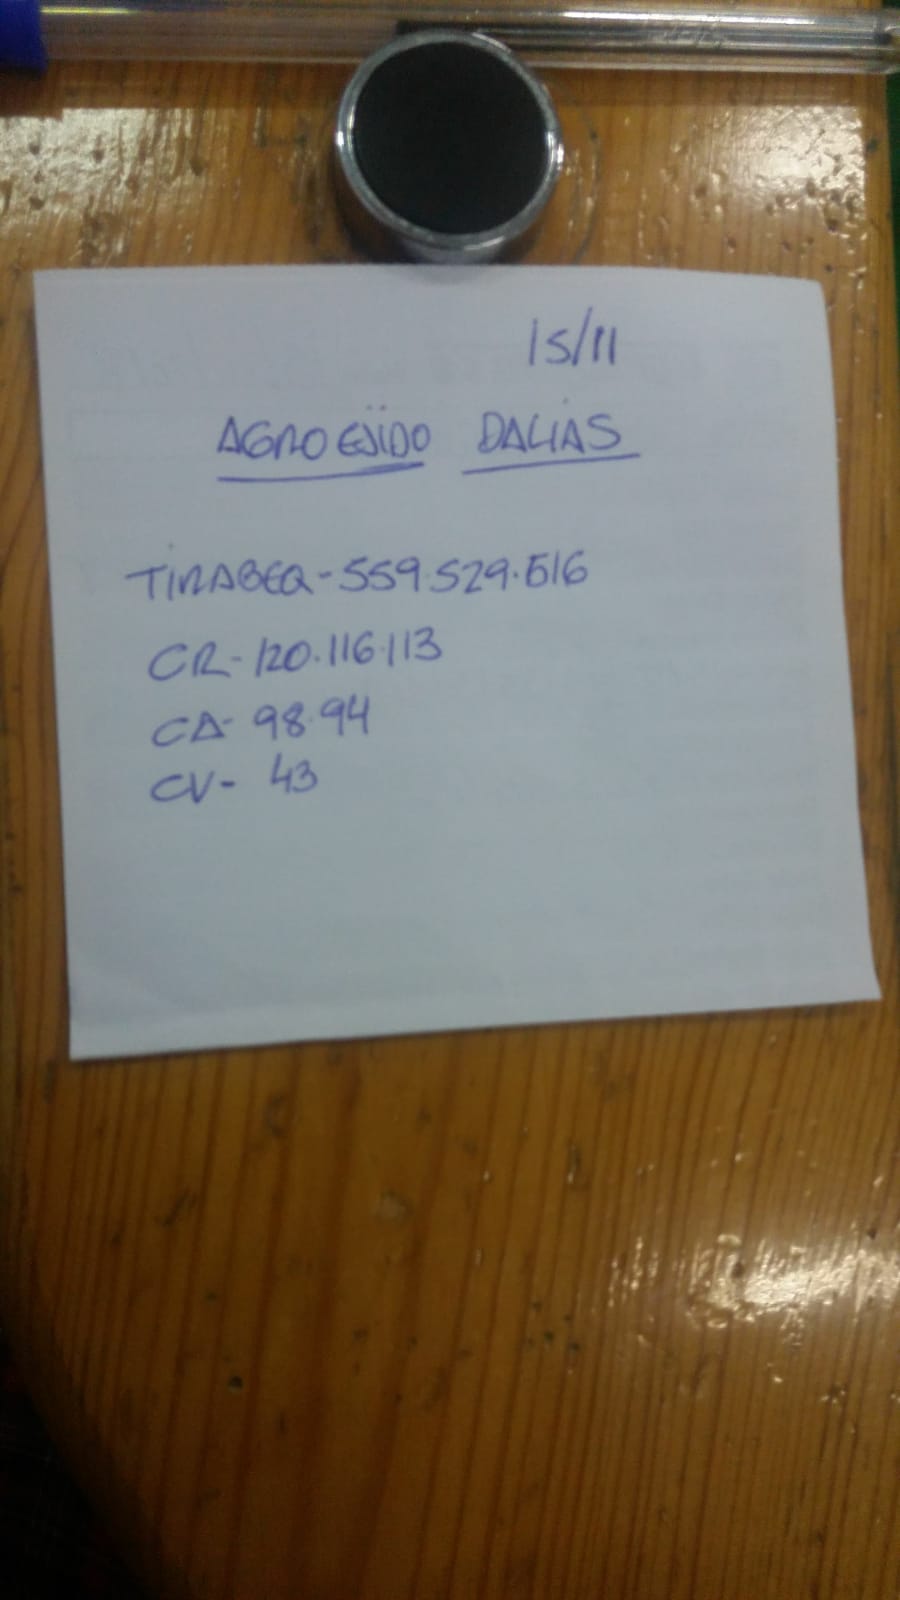 15/11
AGROEJIDO DALIAS
TIRABEQ-559.529.516
CR-120.116.113
CA-98.94
CV-43